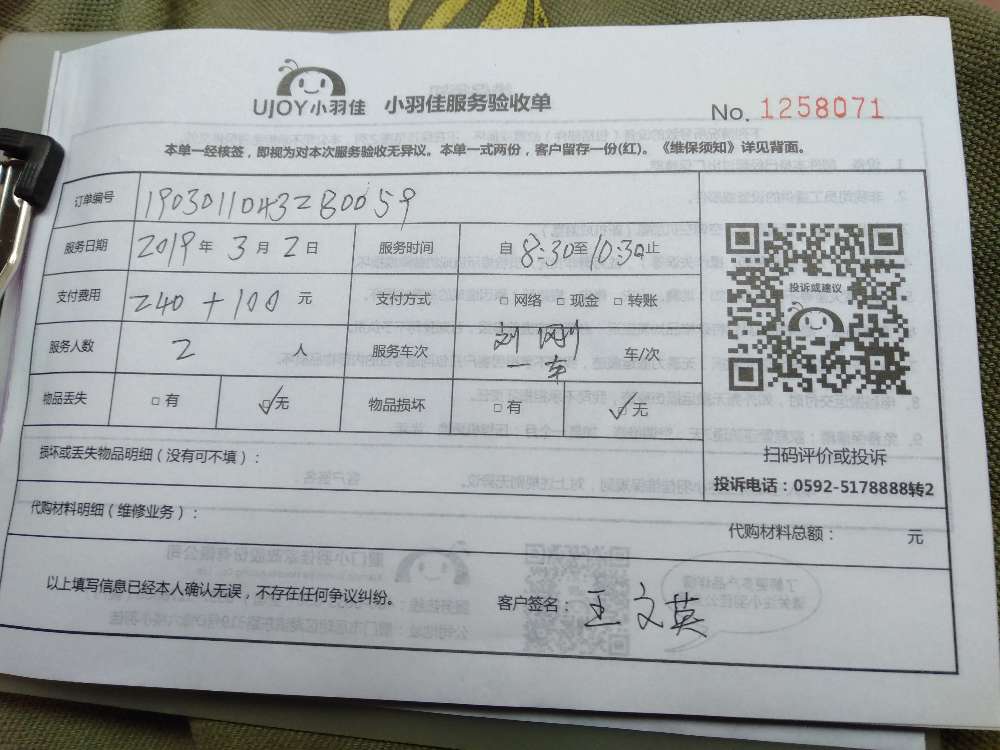 UJOY小羽佳 小羽佳服务验收单
No. 1258071
本单一经核签，即视为对本次服务验收无异议。本单一式两份，客户留存一份(红)。《维保须知》详见背面。
订单编号 19030110432B0059
服务日期 2019年3月2日 服务时间 自8:30至10:30止
支付费用 240+100 元 支付方式 □网络 □现金 □转账
服务人数 2 人 服务车次 刘刚 一车 车/次
物品丢失 □有 ☑无 物品损坏 □有 ☑无
投诉或建议
扫码评价或投诉
投诉电话：0592-5178888转2
损坏或丢失物品明细（没有可不填）：
代购材料明细（维修业务）： 代购材料总额： 元
以上填写信息已经本人确认无误，不存在任何争议纠纷。 客户签名：王文英